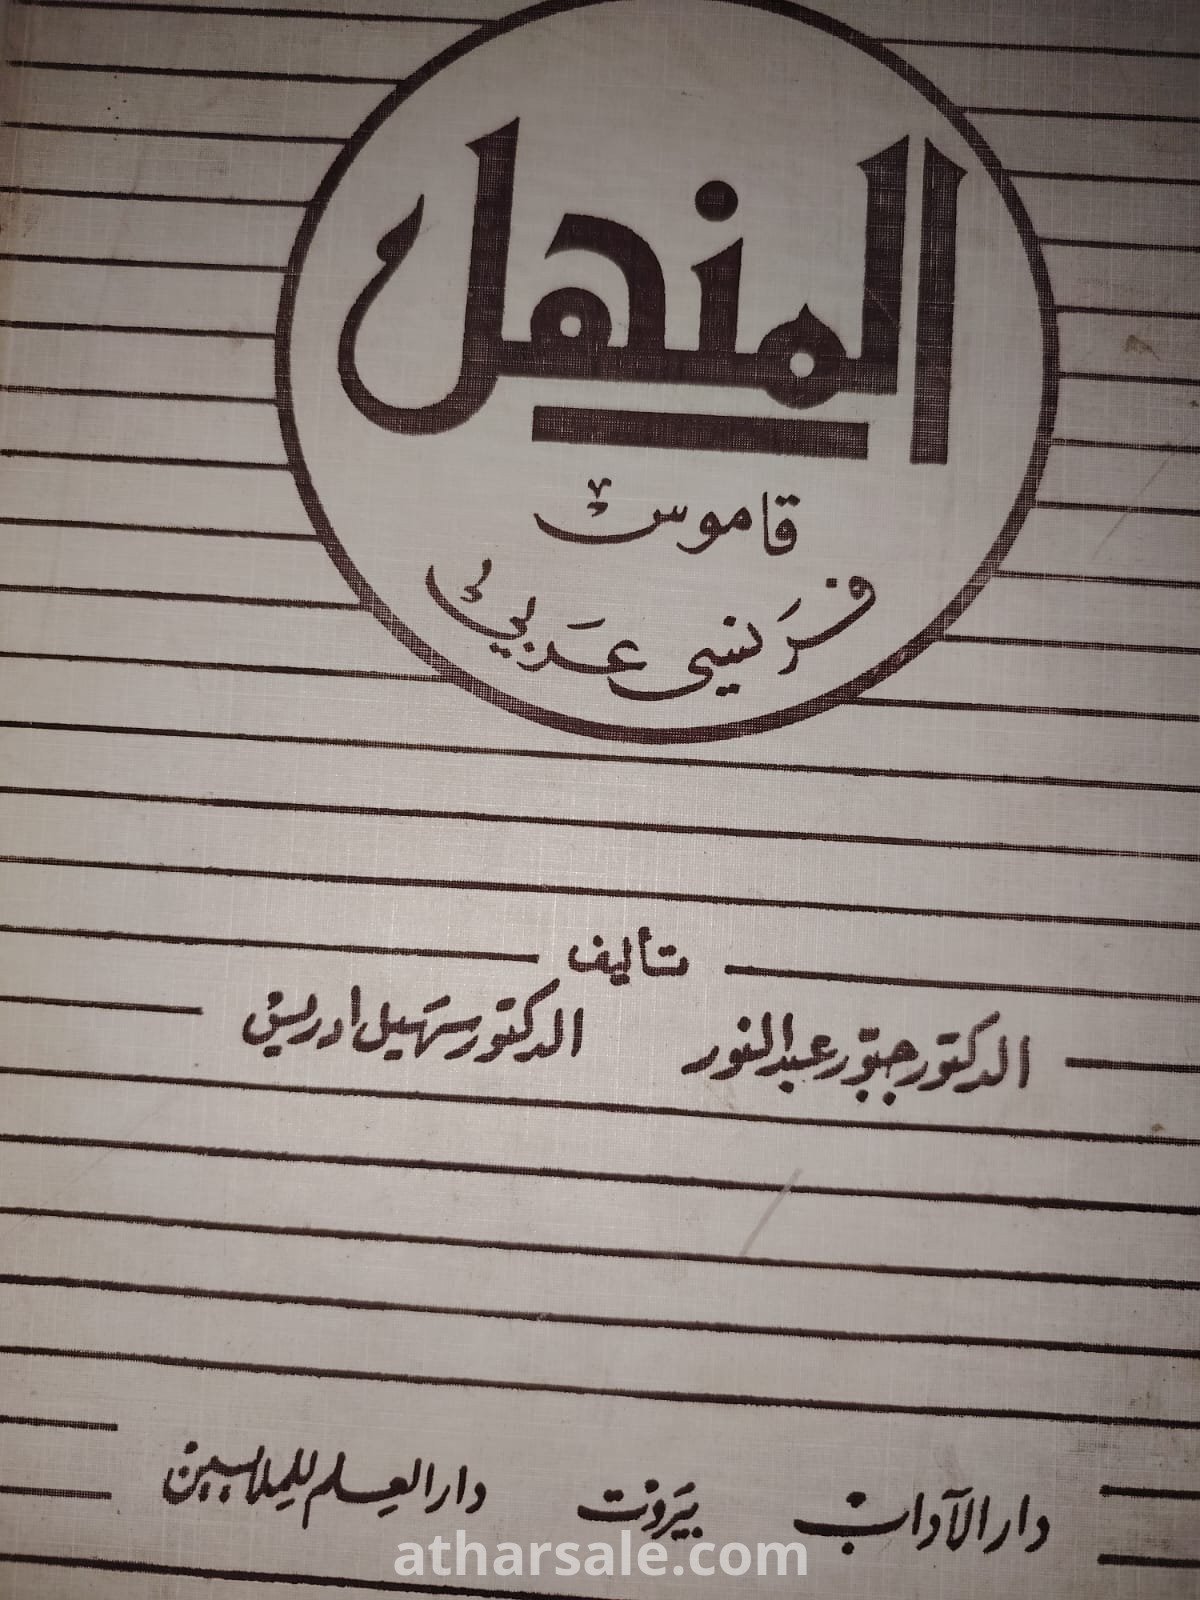 المنهل
قاموس
فرَنسِي عَرَبي
تأليف
الدكتور جبّور عبد النور الدكتور سهَيل ادريس
دار الآداب بيَروت دار العِلم للمِلايين
atharsale.com